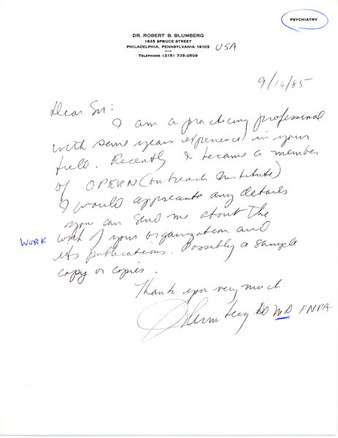 DR. ROBERT B. BLUMBERG
1835 SPRUCE STREET
PHILADELPHIA, PENNSYLVANIA 19103 USA
TELEPHONE (215) 735-0809
PSYCHIATRY
9/10/85
Dear Sir:
I am a practicing professional
with some years experience in your
field. Recently I became a member
of OPERN (Outreach Institute)
I would appreciate any details
you can send me about the
WORK work of your organization and
its publications. Possibly a sample
copy or copies.
Thank you very much
MD FNPA